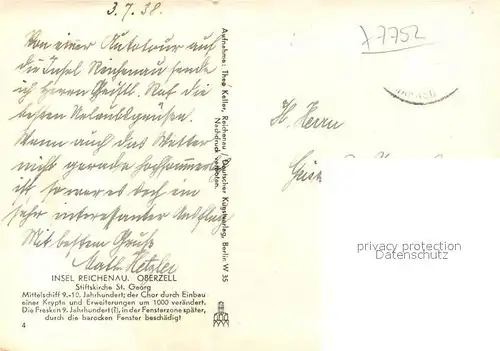 3.7.38.
Von einer Autotour auf
die Insel Reichenau sende
ich Herrn Geistl. Rat die
besten Urlaubsgrüße.
Wenn auch das Wetter
nicht gerade hochsommerl.
ist so war es doch ein
sehr interessanter Ausflug
Mit bestem Gruß
Math. Hetzler
INSEL REICHENAU. OBERZELL
Stiftskirche St. Georg
Mittelschiff 9.-10. Jahrhundert; der Chor durch Einbau
einer Krypta und Erweiterungen um 1000 verändert.
Die Fresken 9. Jahrhundert (?), in der Fensterzone später,
durch die barocken Fenster beschädigt
4
Aufnahme: Theo Keller, Reichenau / Deutscher Kunstverlag, Berlin W 35
Nachdruck verboten.
7752
H. Herrn
Geist
privacy protection
oldthing.com